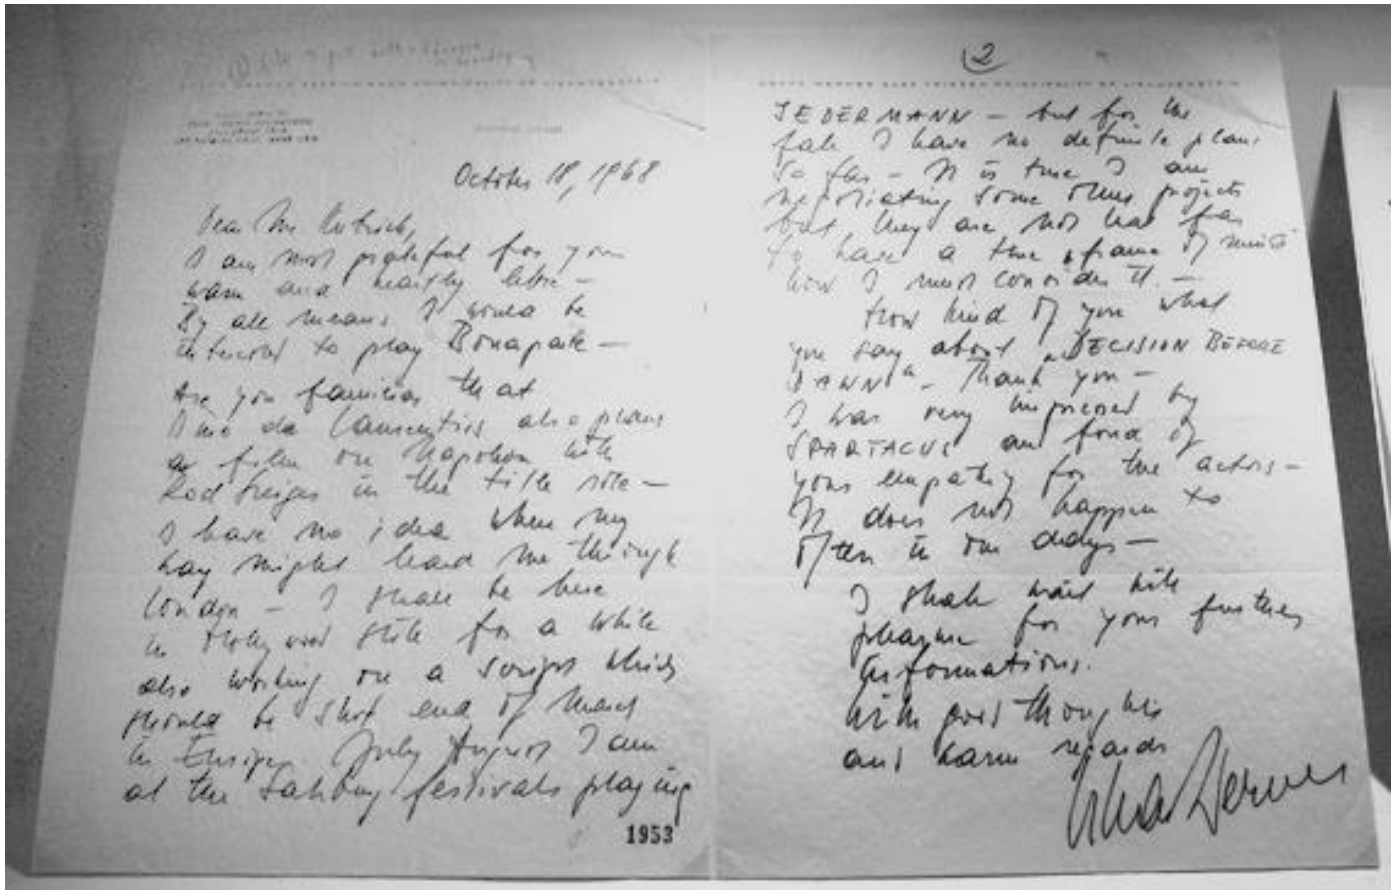 October 18, 1968
Dear Mr Kubrick,
I am most grateful for your
warm and heartly letter —
By all means I would be
interested to play Bonaparte —
Are you familiar that
Dino da Laurentiis also plans
a film on Napoleon with
Rod Steiger in the title role —
I have no idea when my
way might lead me through
London — I shall be here
in Hollywood still for a while
also working on a script which
should be shot end of March
in Europe. July August I am
at the Salzburg festivals playing
1953
2
JEDERMANN — but for the
fall I have no definite plans
so far — It is true I am
negotiating some other projects
but they are not that far
to have a time frame of
how I must consider it. —
How kind of you what
you say about "DECISION BEFORE
DAWN" — Thank you —
I was very impressed by
SPARTACUS and fond of
your empathy for the actors —
It does not happen to
often in our days —
I shall wait with
pleasure for your further
informations.
With good thoughts
and warm regards
Oskar Werner